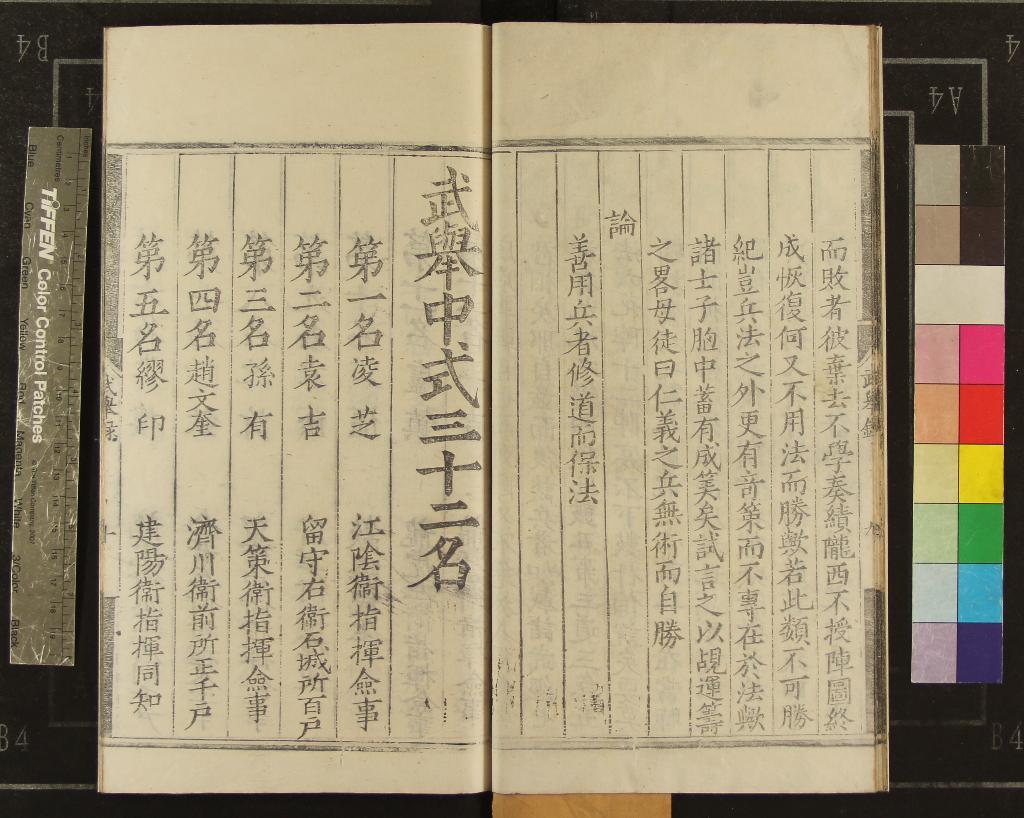 而敗者彼棄去不學奏績隴西不授陣圖終
成恢復何又不用法而勝歟若此類不可勝
紀豈兵法之外更有竒策而不專在於法歟
諸士子胸中蓄有成筭矣試言之以覘運籌
之畧毋徒曰仁義之兵無術而自勝
論
善用兵者修道而保法
武舉中式三十二名
第一名凌芝 江陰衞指揮僉事
第二名袁吉 留守右衞石城所百戶
第三名孫有 天策衞指揮僉事
第四名趙文奎 濟川衞前所正千戶
第五名繆印 建陽衞指揮同知
武舉錄 九
武舉錄 十
TIFFEN Color Control Patches
Centimetres
Inches
Blue
Cyan
Green
Yellow
Red
Magenta
White
3/Color
Black
B4
A4
B4
A4
4
B4